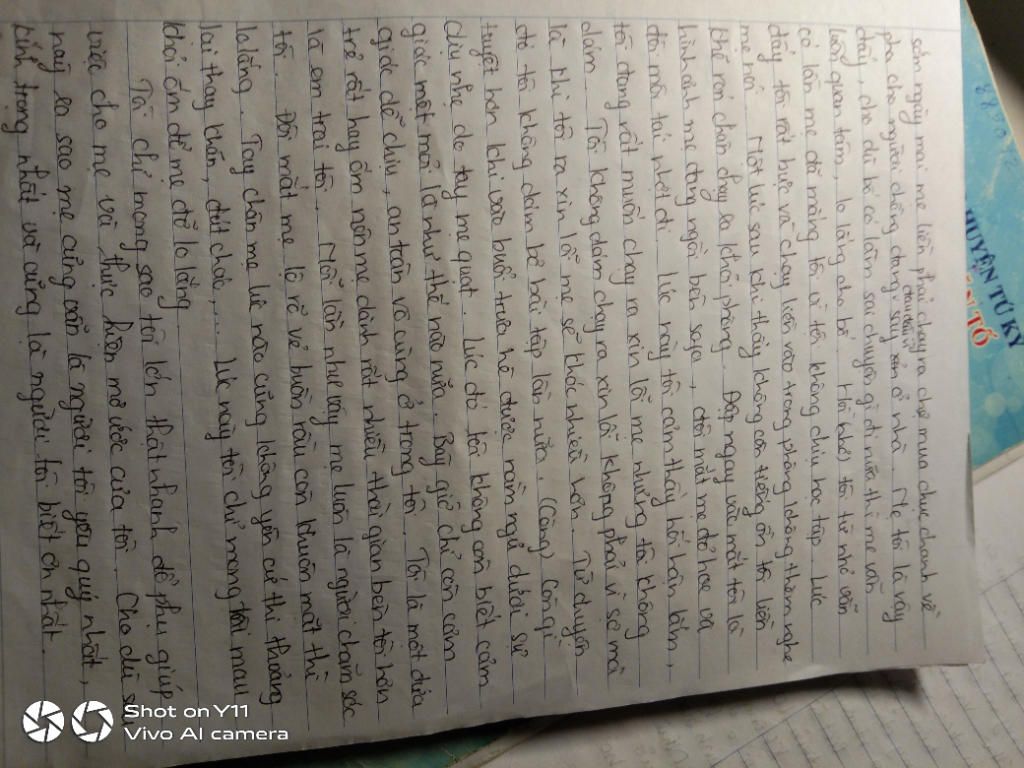 sớm ngày mai mẹ liền phải chạy ra chợ mua chục chanh về
pha cho người chồng đang say xỉn ở nhà. Mẹ tôi là vậy
đấy, cho dù bố có làm sai chuyện gì đi nữa thì mẹ vẫn
luôn quan tâm, lo lắng cho bố. Hồi tôi từ nhỏ vẫn
có lần mẹ đã mắng tôi vì tội không chịu học tập. Lúc
đấy tôi rất bực và chạy liền vào trong phòng không thèm nghe
mẹ nói. Một lúc sau khi thấy không còn tiếng ồn tôi liền
khẽ rén chân chạy ra khỏi phòng. Đập ngay vào mắt tôi là
hình ảnh mẹ đang ngồi bên sofa, đôi mắt mẹ đỏ hoe và
đôi môi tái nhợt đi. Lúc này tôi cảm thấy hối hận lắm,
tôi đang rất muốn chạy ra xin lỗi mẹ nhưng tôi không
dám. Tôi không dám chạy ra xin lỗi không phải vì sợ mà
là khi tôi ra xin lỗi mẹ sẽ khóc nhiều hơn. Từ chuyện
đó tôi không dám bỏ bài tập lần nữa. (Càng) Còn gì
tuyệt hơn khi vào buổi trưa hè được nằm ngủ dưới sự
dịu nhẹ do tay mẹ quạt. Lúc đó tôi không còn biết cảm
giác mệt mỏi là như thế nào nữa. Bây giờ chỉ còn cảm
giác dễ chịu, an toàn vô cùng ở trong tôi. Tôi là một đứa
trẻ rất hay ốm nên mẹ dành rất nhiều thời gian bên tôi hơn
là em trai tôi. Mỗi lần như vậy mẹ luôn là người chăm sóc
tôi. Đôi mắt mẹ lộ rõ vẻ buồn rầu còn khuôn mặt thì
lo lắng. Tay chân mẹ lúc nào cũng chẳng yên cứ thi thoảng
lại thay khăn, đút cháo,... Lúc này tôi chỉ mong tôi mau
khỏi ốm để mẹ đỡ lo lắng
Tôi chỉ mong sao tôi lớn thật nhanh để phụ giúp
việc cho mẹ và thực hiện mơ ước của tôi. Cho dù sau
này ra sao mẹ cũng vẫn là người tôi yêu quý nhất,
kính trọng nhất và cũng là người tôi biết ơn nhất.
HUYỆN TỨ KỲ
Shot on Y11
Vivo AI camera